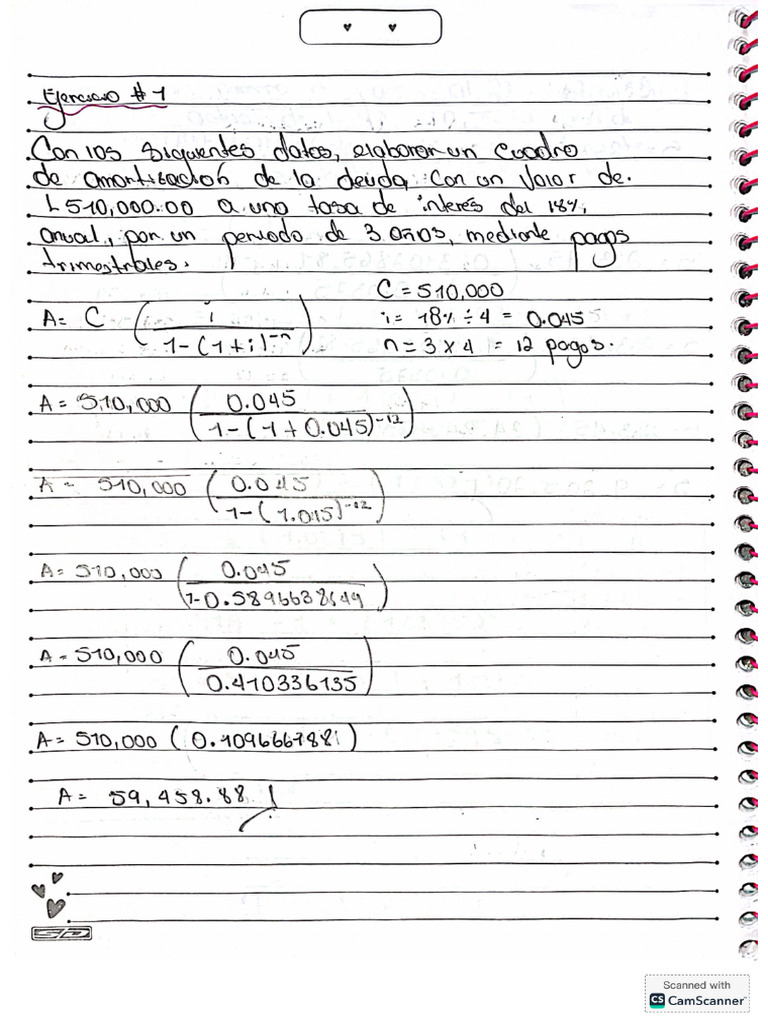 Ejercicio #1
Con los siguientes datos, elaborar un cuadro
de amortización de la deuda. Con un valor de.
L 510,000.00 a una tasa de interés del 18%,
anual, por un periodo de 3 años, mediante pagos
trimestrales.
C = 510,000
A= C (i / 1-(1+i)⁻ⁿ) i= 18% ÷ 4 = 0.045
n= 3 x 4 = 12 pagos.
A = 510,000 (0.045 / 1-(1+0.045)⁻¹²)
A = 510,000 (0.045 / 1-(1.045)⁻¹²)
A= 510,000 (0.045 / 1-0.5896638649)
A= 510,000 (0.045 / 0.410336135)
A= 510,000 (0.1096667881)
A= 59,458.88
Scanned with
CS CamScanner